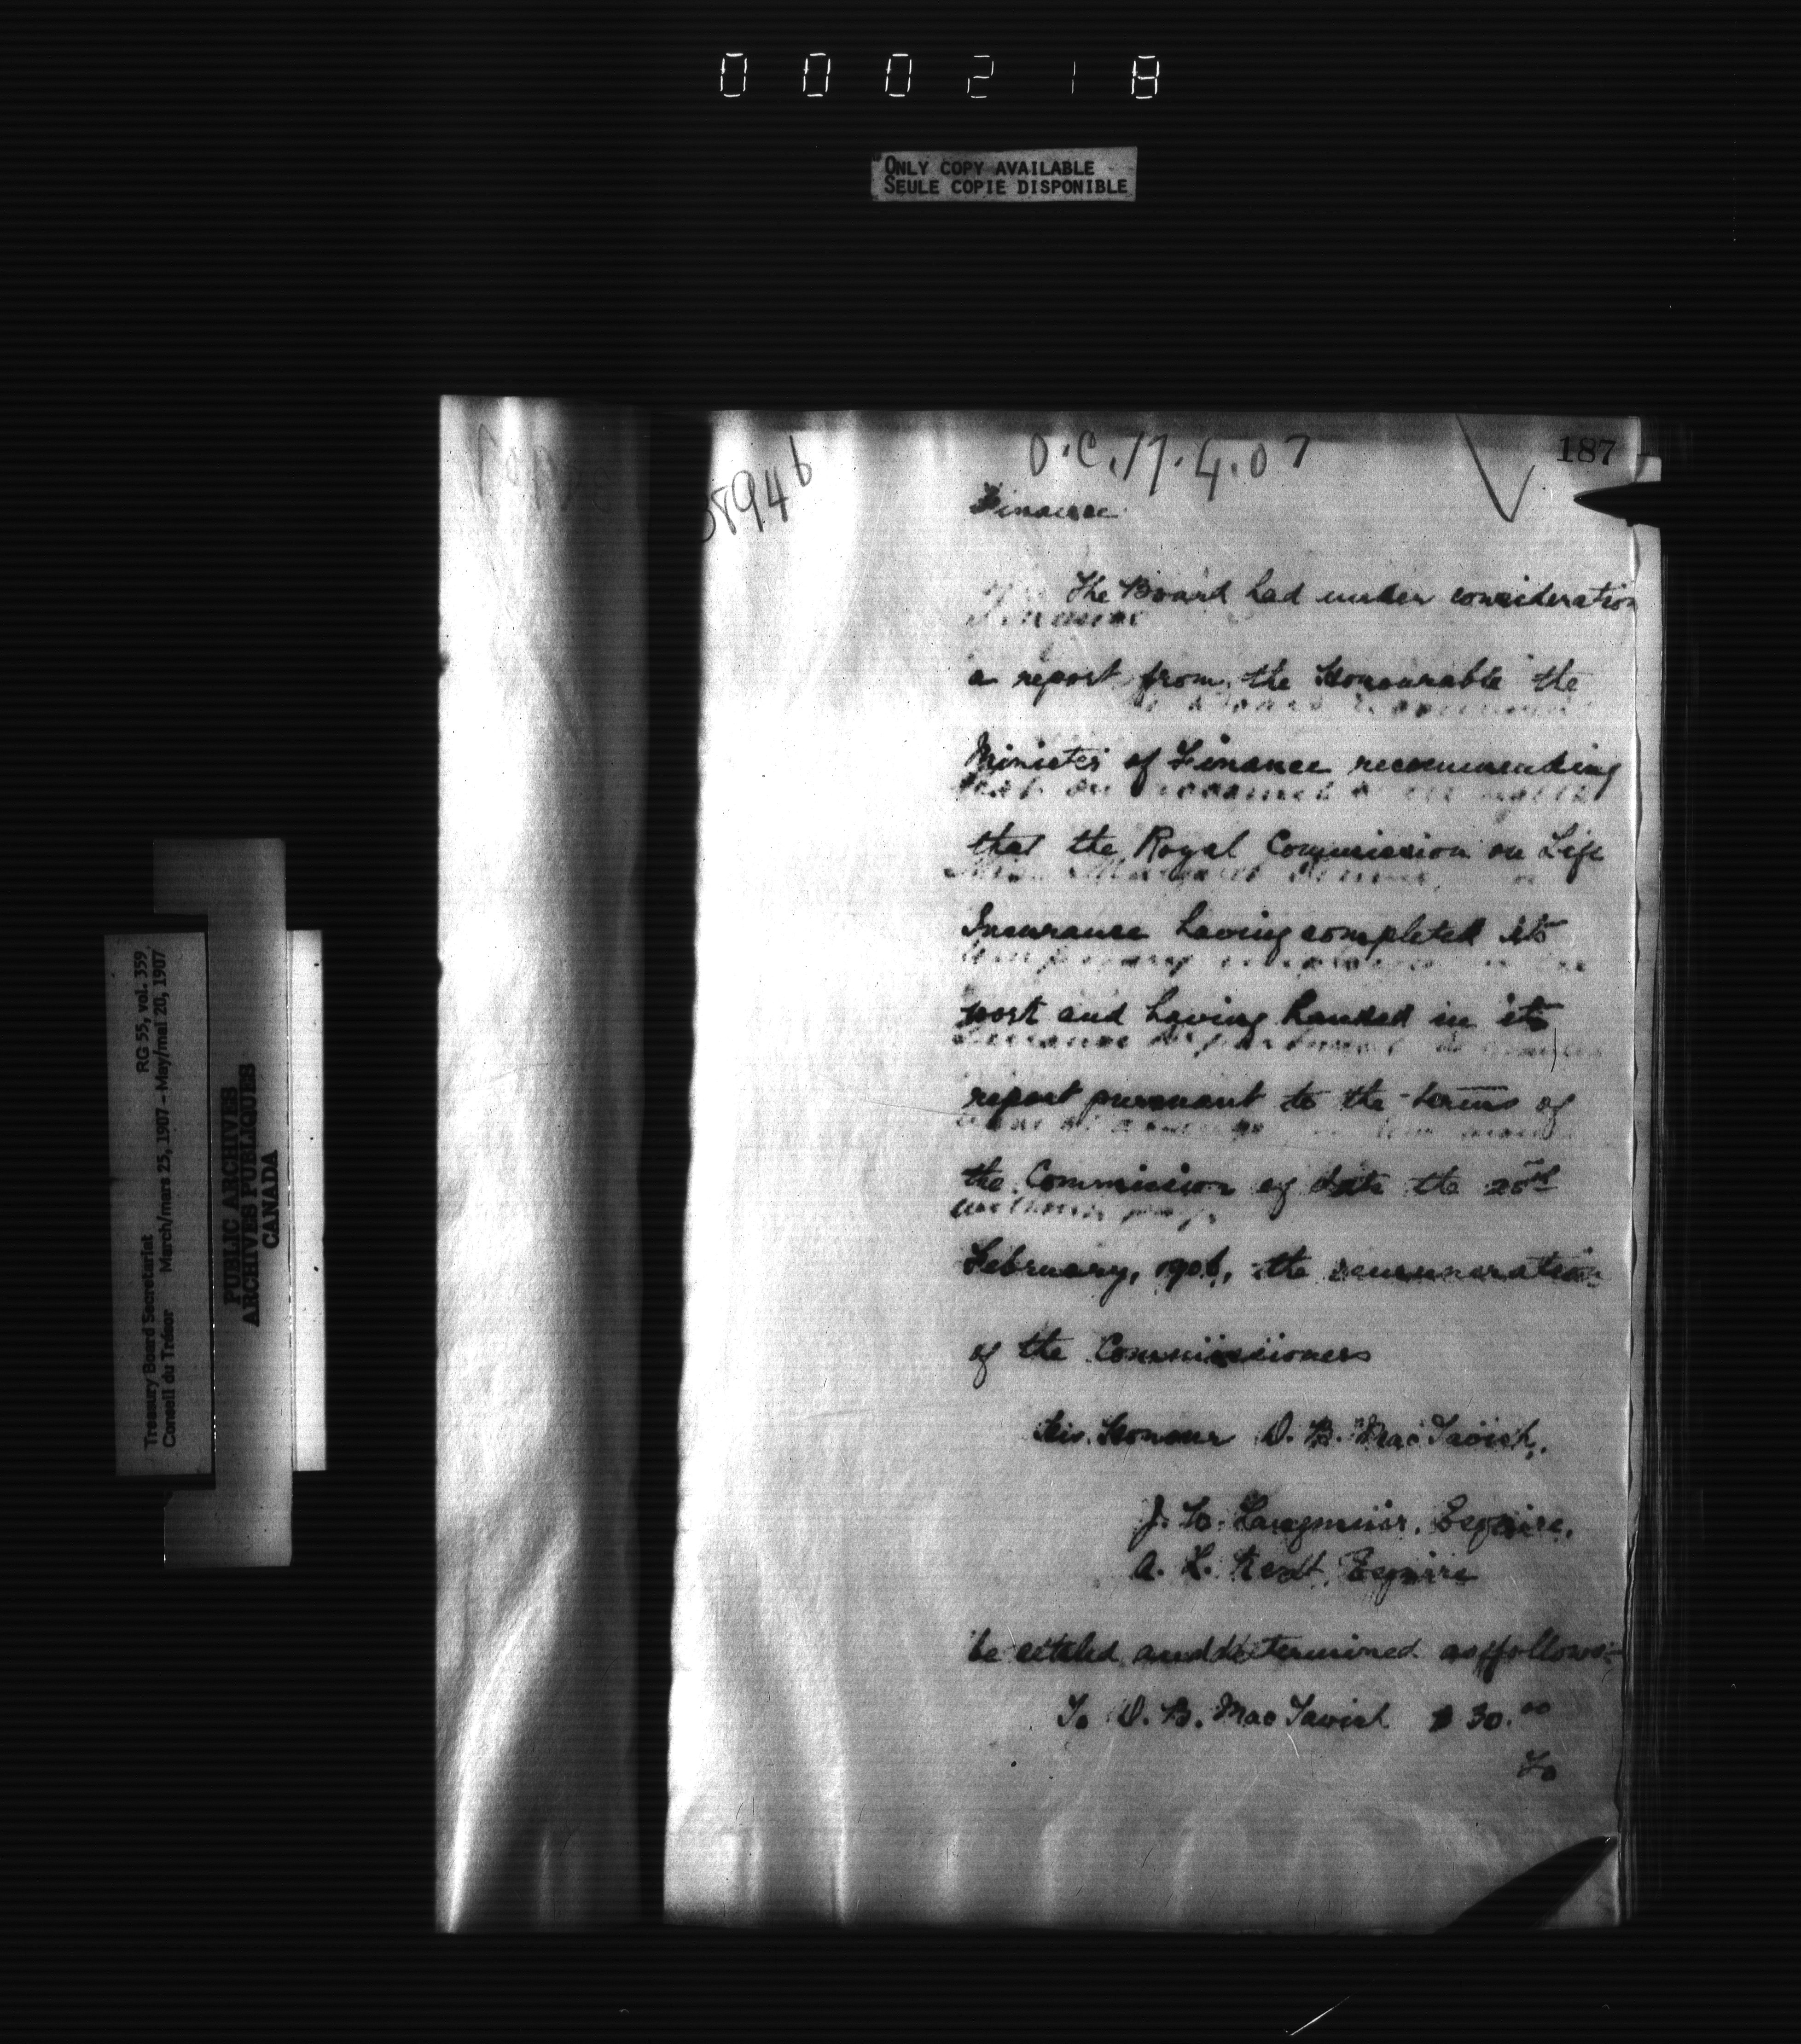 000218
ONLY COPY AVAILABLE
SEULE COPIE DISPONIBLE
187
O.C. 17.4.07
8946
Finance
The Board had under consideration
a report from the Honourable the
Minister of Finance recommending
that the Royal Commission on Life
Insurance having completed its
port and having handed in its
report pursuant to the terms of
the Commission of date the 28th
February, 1906, the remuneration
of the Commissioners
His Honour D. B. MacTavish,
J. W. Langmuir, Esquire,
A. L. Kent, Esquire
be settled and determined as follows:-
To D. B. MacTavish $30.00
To
Treasury Board Secretariat RG 55, vol. 359
Conseil du Trésor March/mars 25, 1907 - May/mai 20, 1907
PUBLIC ARCHIVES
ARCHIVES PUBLIQUES
CANADA